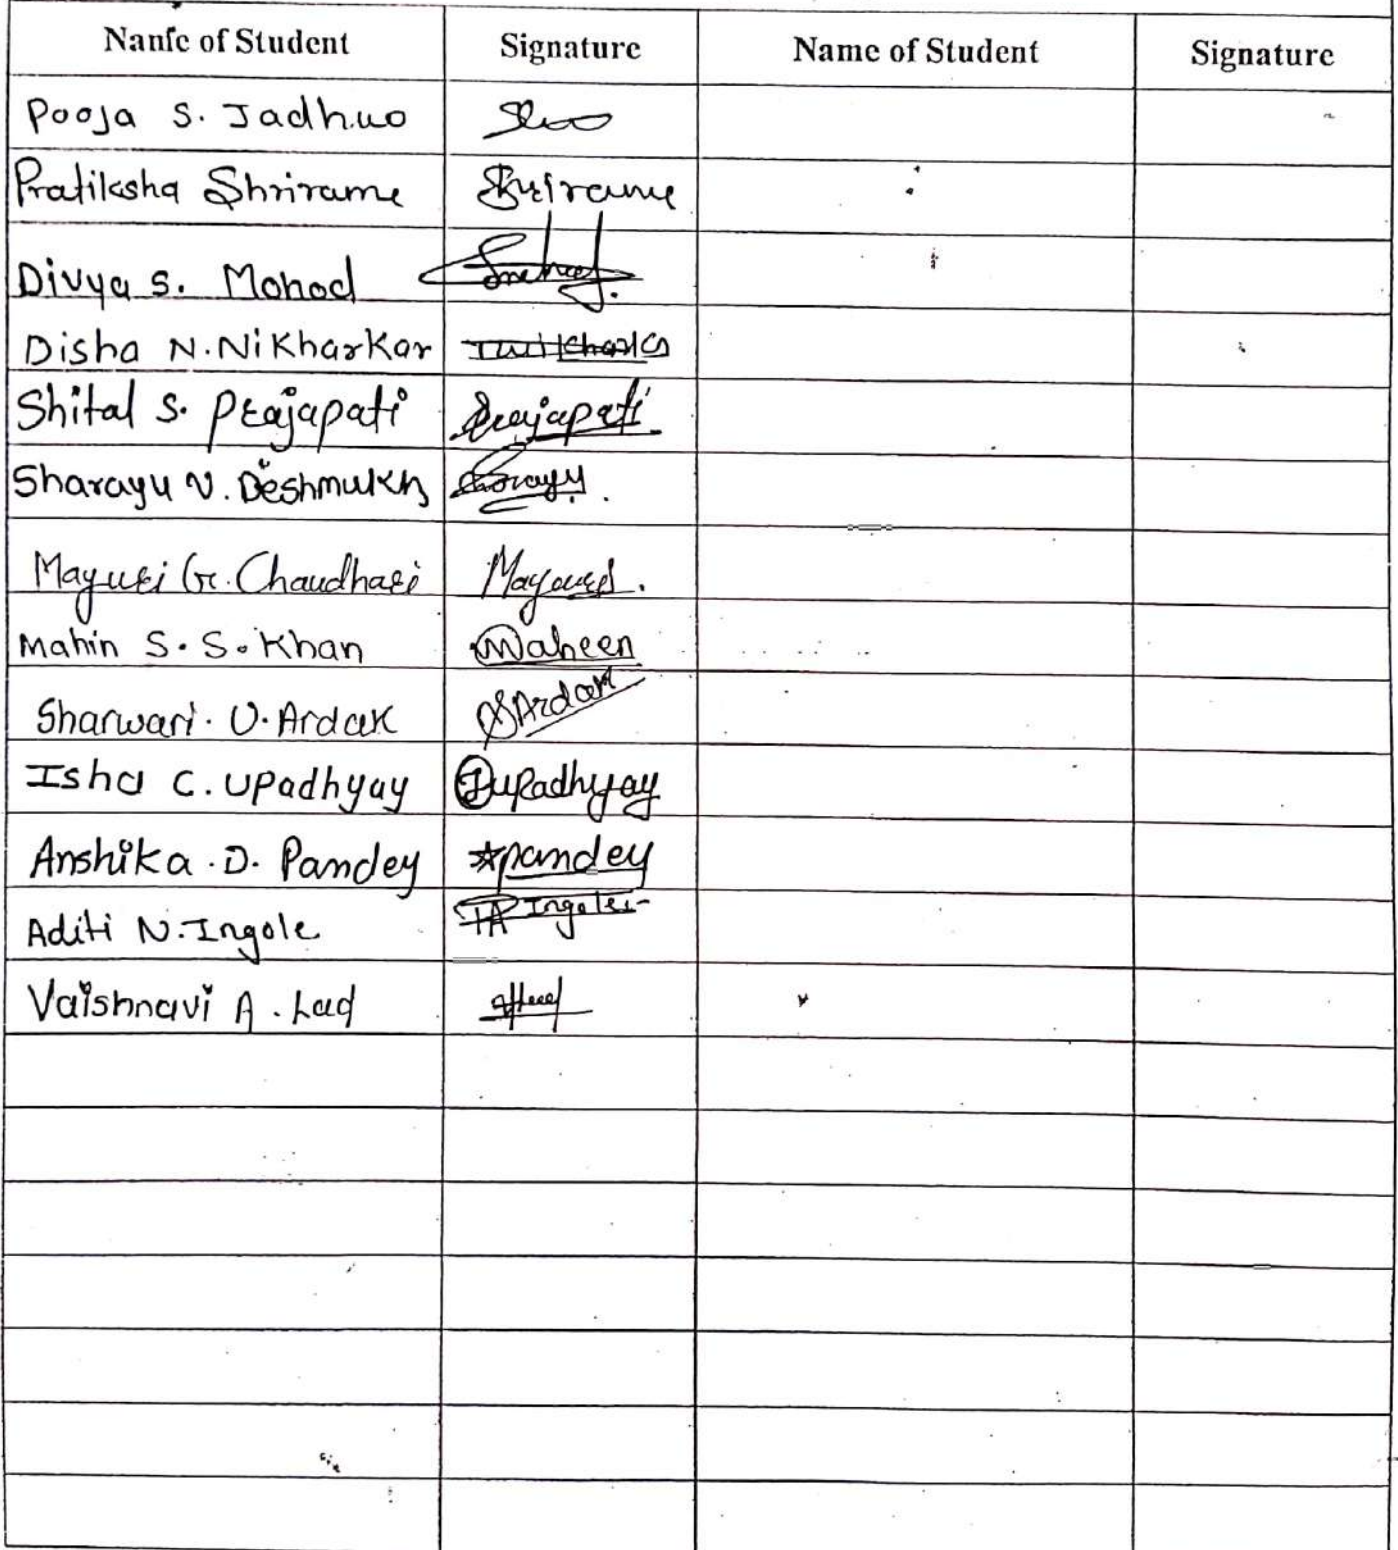 Name of Student Signature Name of Student Signature
Pooja S. Jadhuo
Pratiksha Shrirame Shrirame
Divya S. Mohod
Disha N. Nikharkar
Shital S. Prajapati Prajapati
Sharayu V. Deshmukh Sharayu.
Mayuri G. Chaudhari Mayuri.
Mahin S. S. Khan Maheen
Sharwari. U. Ardak SArdak
Isha C. Upadhyay IUpadhyay
Anshika. D. Pandey pandey
Aditi N. Ingole Ingole
Vaishnavi A. Lad